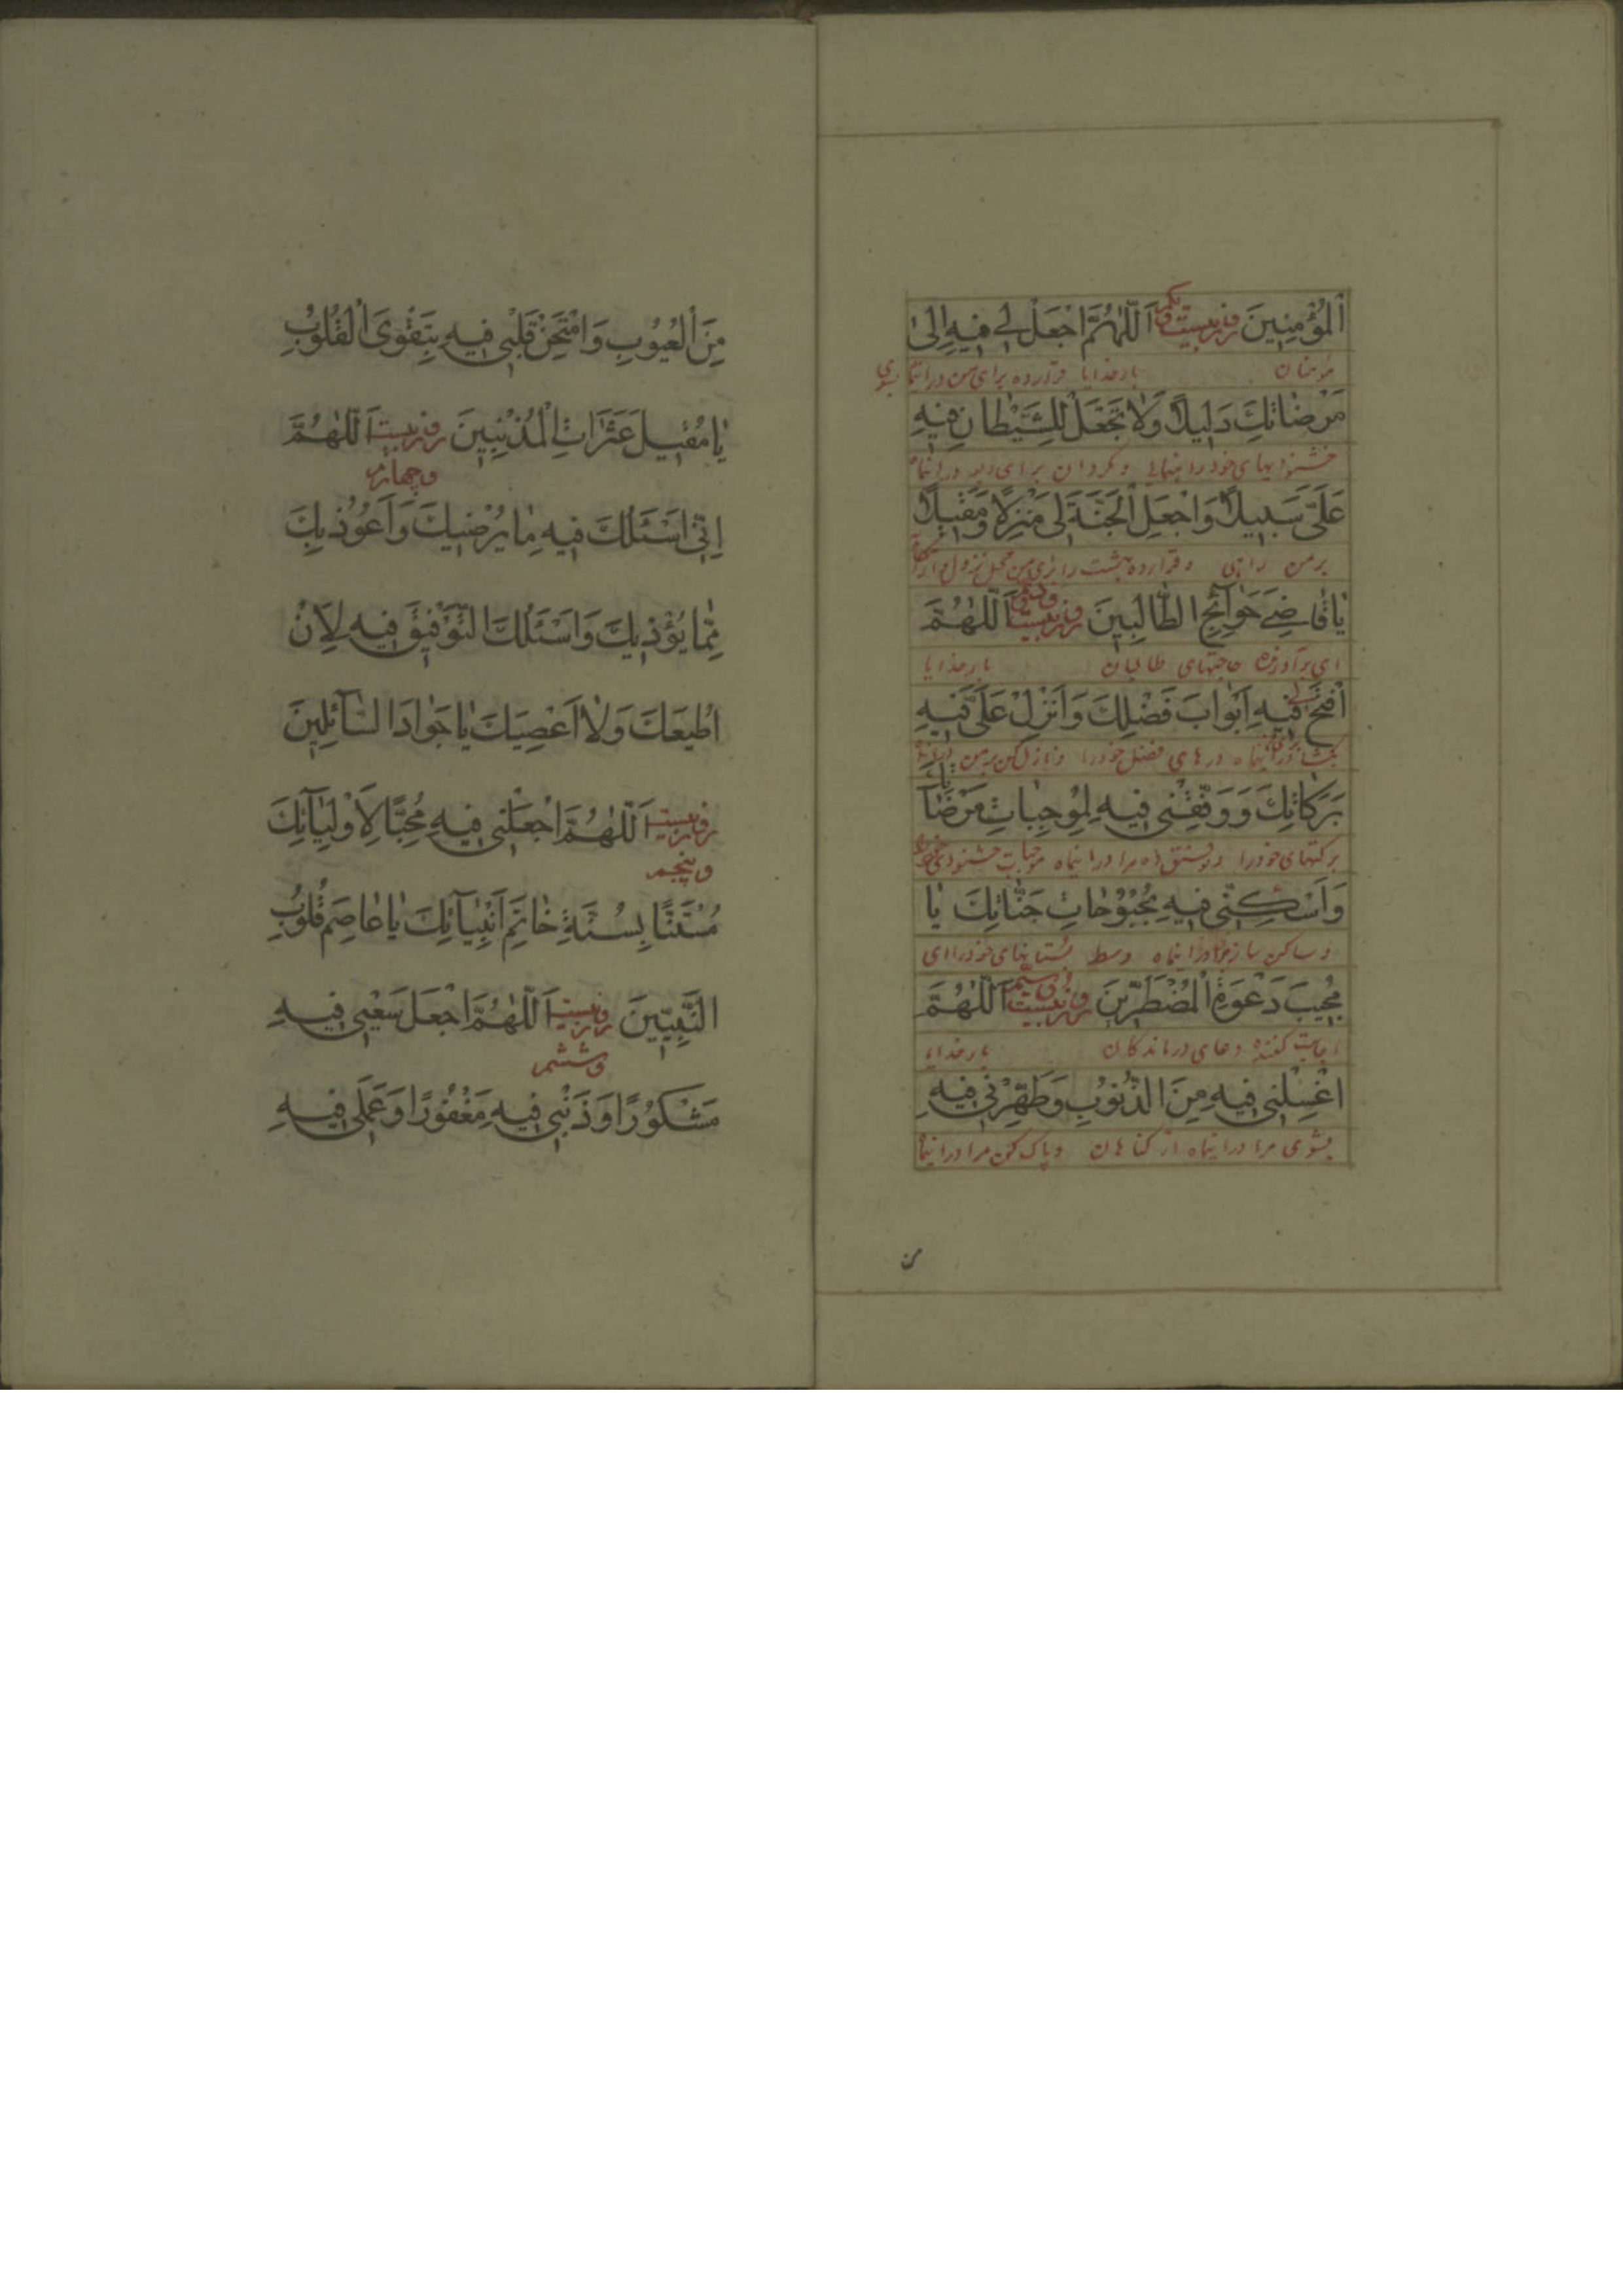 اَلْمُؤْمِنِينَ روز بیست و یکم اَللّٰهُمَّ اجْعَلْ لِي فِيهِ اِلىٰ
مؤمنان بارخدایا قرارده برای من دراینماه بسوی
مَرْضَاتِكَ دَلِيلًا وَلَا تَجْعَلْ لِلشَّيْطَانِ فِيهِ
خشنودیهای خود راهنمایی و مگردان برای دیو دراینماه
عَلَيَّ سَبِيلًا وَاجْعَلِ الْجَنَّةَ لِي مَنْزِلًا وَمَقِيلًا
برمن راهی و قرارده بهشت را برای من محل نزول و
يَا قَاضِيَ حَوَائِجِ الطَّالِبِينَ روز بیست و دویم اَللّٰهُمَّ
ای برآورنده حاجتهای طالبان بارخدایا
افْتَحْ لِي فِيهِ اَبْوَابَ فَضْلِكَ وَاَنْزِلْ عَلَيَّ فِيهِ
بگشا برای من دراینماه درهای فضل خودرا و نازل کن برمن دراینماه
بَرَكَاتِكَ وَوَفِّقْنِي فِيهِ لِمُوجِبَاتِ مَرْضَاتِكَ
برکتهای خودرا و توفیق ده مرا دراینماه موجبات خشنودی خودرا
وَاَسْكِنِّي فِيهِ بُحْبُوحَاتِ جَنَّاتِكَ يَا
و ساکن ساز مرا دراینماه وسط بستانهای خودرا ای
مُجِيبَ دَعْوَةِ الْمُضْطَرِّينَ روز بیست و سیم اَللّٰهُمَّ
اجابت کننده دعای درماندگان بارخدایا
اغْسِلْنِي فِيهِ مِنَ الذُّنُوبِ وَطَهِّرْنِي فِيهِ
بشوی مرا دراینماه از گناهان و پاک کن مرا دراینماه
من
مِنَ الْعُيُوبِ وَامْتَحِنْ قَلْبِي فِيهِ بِتَقْوَى الْقُلُوبِ
يَا مُقِيلَ عَثَرَاتِ الْمُذْنِبِينَ روز بیست و چهارم اَللّٰهُمَّ
اِنِّي اَسْئَلُكَ فِيهِ مَا يُرْضِيكَ وَاَعُوذُ بِكَ
مِمَّا يُؤْذِيكَ وَاَسْئَلُكَ التَّوْفِيقَ فِيهِ لِاَنْ
اُطِيعَكَ وَلَا اَعْصِيَكَ يَا جَوَادَ السَّائِلِينَ
روز بیست و پنجم اَللّٰهُمَّ اجْعَلْنِي فِيهِ مُحِبًّا لِاَوْلِيَائِكَ
مُسْتَنًّا بِسُنَّةِ خَاتَمِ اَنْبِيَائِكَ يَا عَاصِمَ قُلُوبِ
النَّبِيِّينَ روز بیست و ششم اَللّٰهُمَّ اجْعَلْ سَعْيِي فِيهِ
مَشْكُورًا وَذَنْبِي فِيهِ مَغْفُورًا وَعَمَلِي فِيهِ